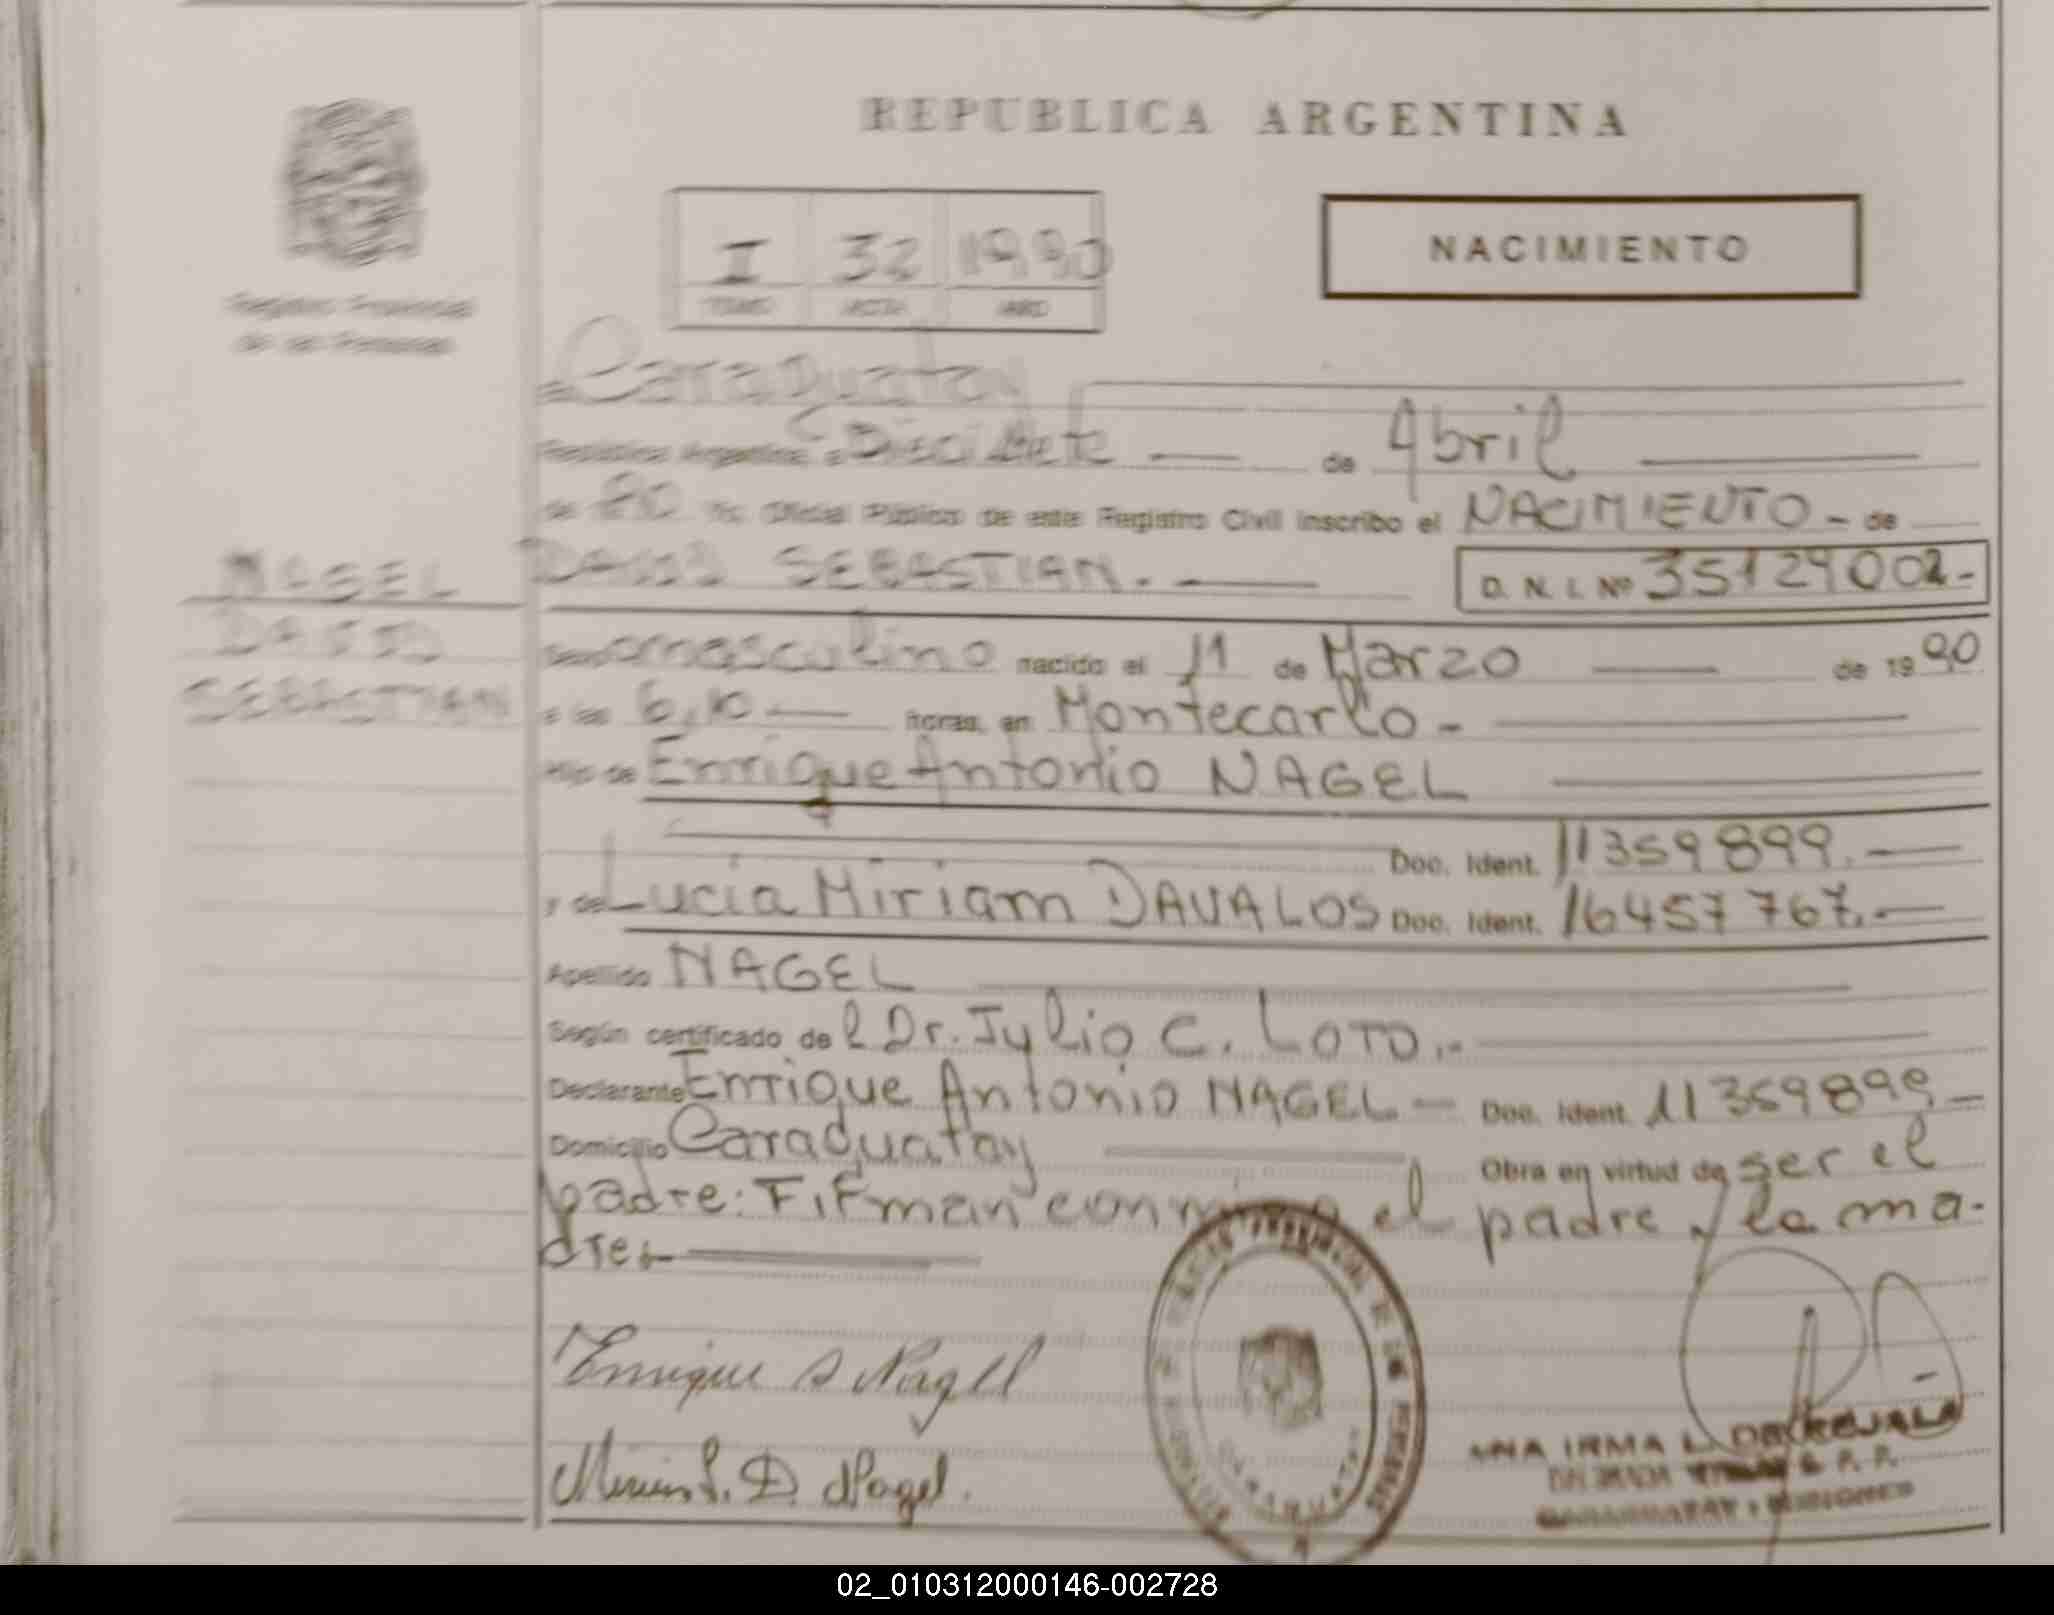 REPUBLICA ARGENTINA
Registro Provincial
de las Personas
I 32 1990
TOMO ACTA AÑO
NACIMIENTO
en Caraguatay
República Argentina, a Diecisiete de Abril
de 90 Yo, Oficial Público de este Registro Civil inscribo el NACIMIENTO - de
NAGEL
DAVID
SEBASTIAN
DAVID SEBASTIAN.
D. N. I. Nº 35124002-
Sexo masculino nacido el 11 de Marzo de 1990
a las 6,10 horas, en Montecarlo -
Hijo de Enrique Antonio NAGEL
Doc. Ident. 11359899.
y de Lucia Miriam DAVALOS Doc. Ident. 16457767.-
Apellido NAGEL
Según certificado de l Dr. Julio C. LOTO.-
Declarante Enrique Antonio NAGEL - Doc. Ident. 11359899-
Domicilio Caraguatay Obra en virtud de ser el
padre: Firman conmigo el padre y la ma-
dre.-
Enrique A Nagel
Miriam L. D. Nagel.
CARAGUATAY
CARAGUATAY - MISIONES
02_010312000146-002728